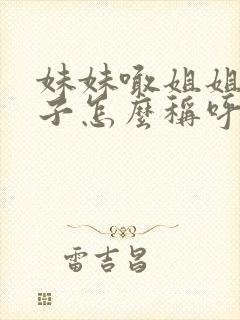 妹妹嗷姐姐
子怎麼稱呼
雷吉昌